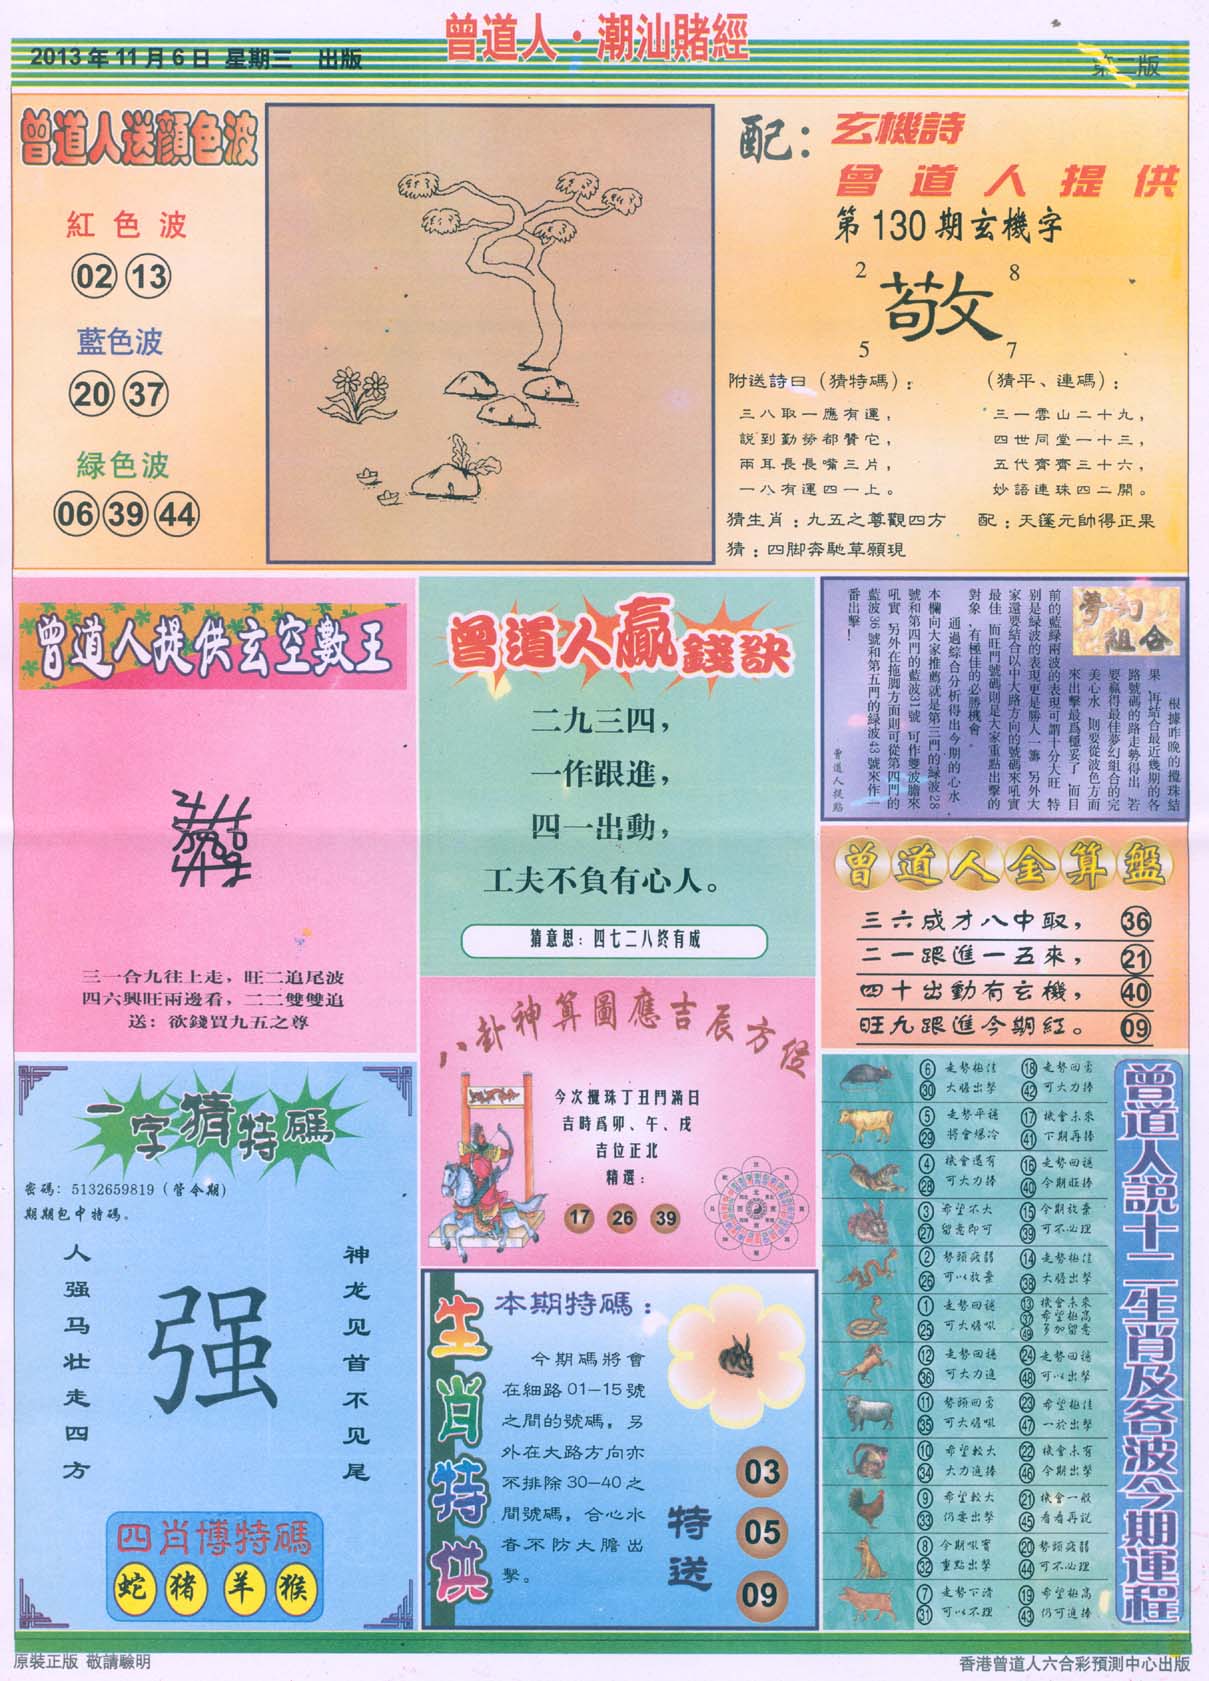 曾道人·潮汕賭經
2013年11月6日 星期三 出版
第二版
曾道人送顏色波
紅色波
02 13
藍色波
20 37
緑色波
06 39 44
配：玄機詩
曾道人提供
第130期玄機字
2 8
敬
5 7
附送詩曰（猜特碼）：
三八取一應有運，
説到勤勞都贊它，
兩耳長長嘴三片，
一八有運四一上。
（猜平、連碼）：
三一雲山二十九，
四世同堂一十三，
五代齊齊三十六，
妙語連珠四二開。
猜生肖：九五之尊觀四方 配：天蓬元帥得正果
猜：四脚奔馳草願現
曾道人提供玄空數王
三一合九往上走，旺二追尾波
四六興旺兩邊看，二二雙雙追
送：欲錢買九五之尊
曾道人贏錢訣
二九三四，
一作跟進，
四一出動，
工夫不負有心人。
猜意思：四七二八终有成
夢幻
組合
根據昨晚的攪珠結
果，再結合最近幾期的各
路號碼的路走勢得出，若
要贏得最佳夢幻組合的完
美心水，則要從波色方面
來出擊最爲穩妥了，而目
前的藍緑兩波的表現可謂十分大旺，特
别是緑波的表現更是勝人一籌，另外大
家還要結合以中大路方向的號碼來吼實
最佳，而旺門號碼則是大家重點出擊的
對象，有極佳的必勝機會。
通過綜合分析得出今期的心水
本欄向大家推薦就是第三門的緑波28
號和第四門的藍波31號，可作雙波膽來
吼實，另外在拖脚方面則可從第四門的
藍波36號和第五門的緑波43號來作一
番出擊！
曾道人提點
曾道人金算盤
三六成才八中取， 36
二一跟進一五來， 21
四十出動有玄機， 40
旺九跟進今期紅。 09
一字猜特碼
密碼：5132659819（管令期）
期期包中特碼。
人强马壮走四方
强
神龙见首不见尾
四肖博特碼
蛇 猪 羊 猴
八卦神算圖應吉辰方位
今次攪珠丁丑門滿日
吉時爲卯、午、戌
吉位正北
精選：
17 26 39
生肖特供
本期特碼：
今期碼將會
在細路01—15號
之間的號碼，另
外在大路方向亦
不排除30—40之
間號碼，合心水
者不防大膽出
擊。
特送
03
05
09
曾道人説十二生肖及各波今期運程
6 走勢極佳 18 走勢回穩
30 大膽出擊 42 可大力捧
5 走勢平穩 17 機會未來
29 將會爆冷 41 下期再捧
4 機會還有 16 走勢回穩
28 可大力捧 40 今期旺捧
3 希望不大 15 今期放棄
27 留意即可 39 可不必理
2 勢頭疲弱 14 走勢極佳
26 可以放棄 38 大膽出擊
1 走勢回穩 13 機會未來
37 希望極高
25 可大膽吼 49 多加留意
12 走勢回穩 24 走勢回穩
36 可大力追 48 可以出擊
11 勢頭回穩 23 希望極佳
35 可大膽吼 47 一於出擊
10 希望較大 22 機會未有
34 大力追捧 46 今期出擊
9 希望較大 21 機會一般
33 仍要出擊 45 看看再説
8 今期吼實 20 勢頭疲弱
32 重點出擊 44 可不必理
7 走勢下滑 19 希望極高
31 可以不理 43 仍可追捧
原裝正版 敬請驗明
香港曾道人六合彩預測中心出版